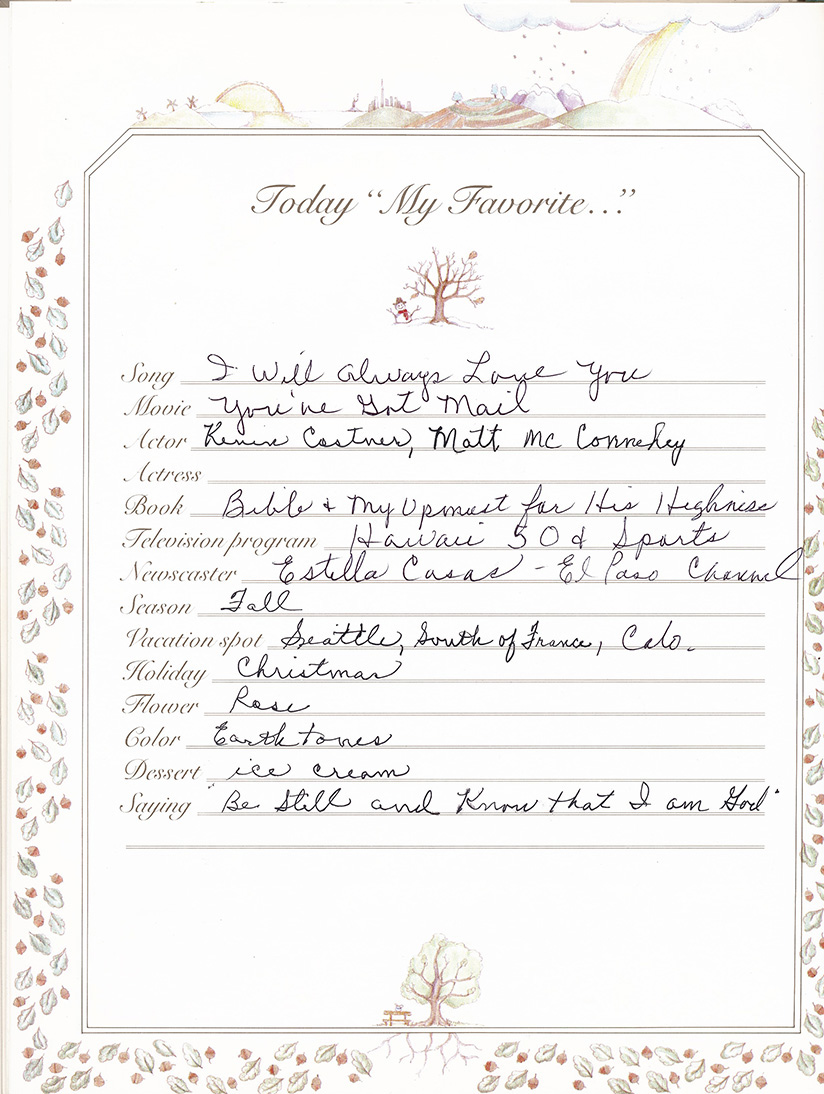 Today “My Favorite...”
Song I Will Always Love You
Movie You've Got Mail
Actor Kevin Costner, Matt Mc Connehey
Actress
Book Bible + My Upmost for His Highness
Television program Hawaii 50 & Sports
Newscaster Estella Casas - El Paso Channel
Season Fall
Vacation spot Seattle, South of France, Colo.
Holiday Christmas
Flower Rose
Color Earth tones
Dessert ice cream
Saying "Be Still and Know that I am God"